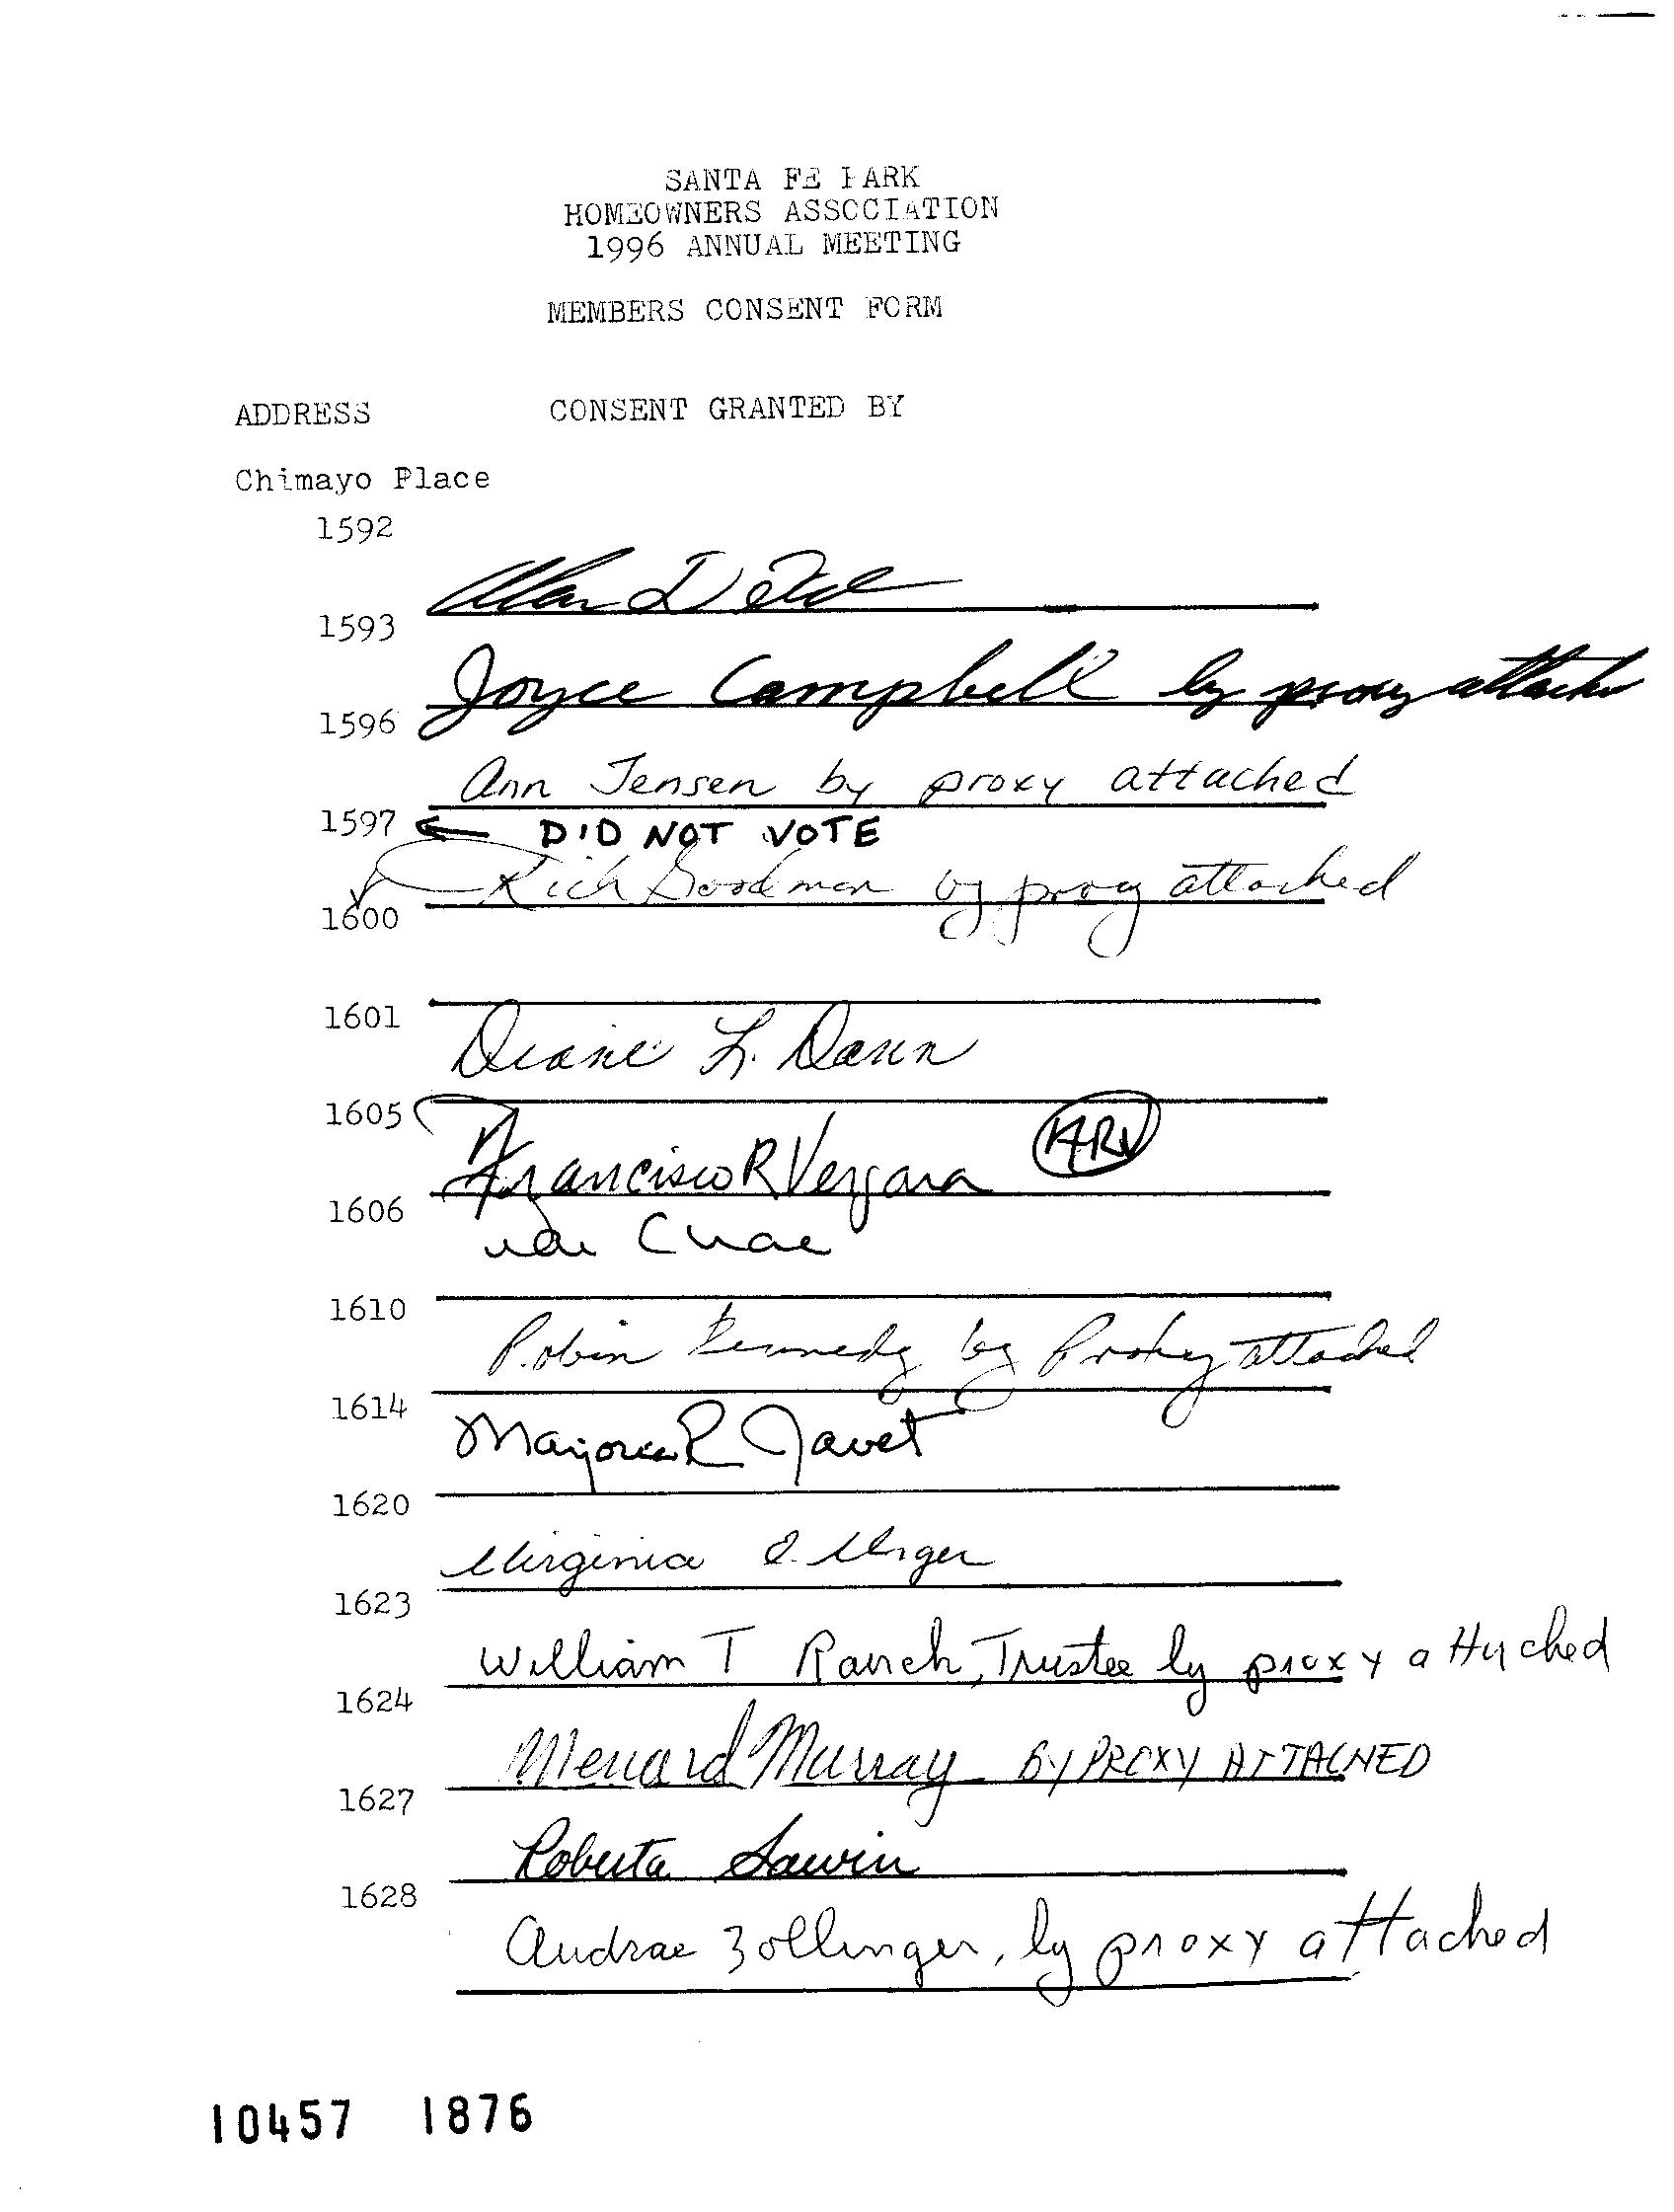 SANTA FE PARK
HOMEOWNERS ASSOCIATION
1996 ANNUAL MEETING
MEMBERS CONSENT FORM
ADDRESS CONSENT GRANTED BY
Chimayo Place
1592
1593
Joyce Campbell by proxy attached
1596
Ann Jensen by proxy attached
1597 ← DID NOT VOTE
Rich Goodman by proxy attached
1600
1601
Diane L. Dann
1605
Francisco R Vergara
1606
1610
Robin Kennedy by Proxy attached
1614
Marjorie R Javet
1620
Virginia Unger
1623
William T Rauch, Trustee by proxy attached
1624
Menard Murray BY PROXY ATTACHED
1627
Roberta Sawin
1628
Audrae Zollinger, by proxy attached
10457 1876